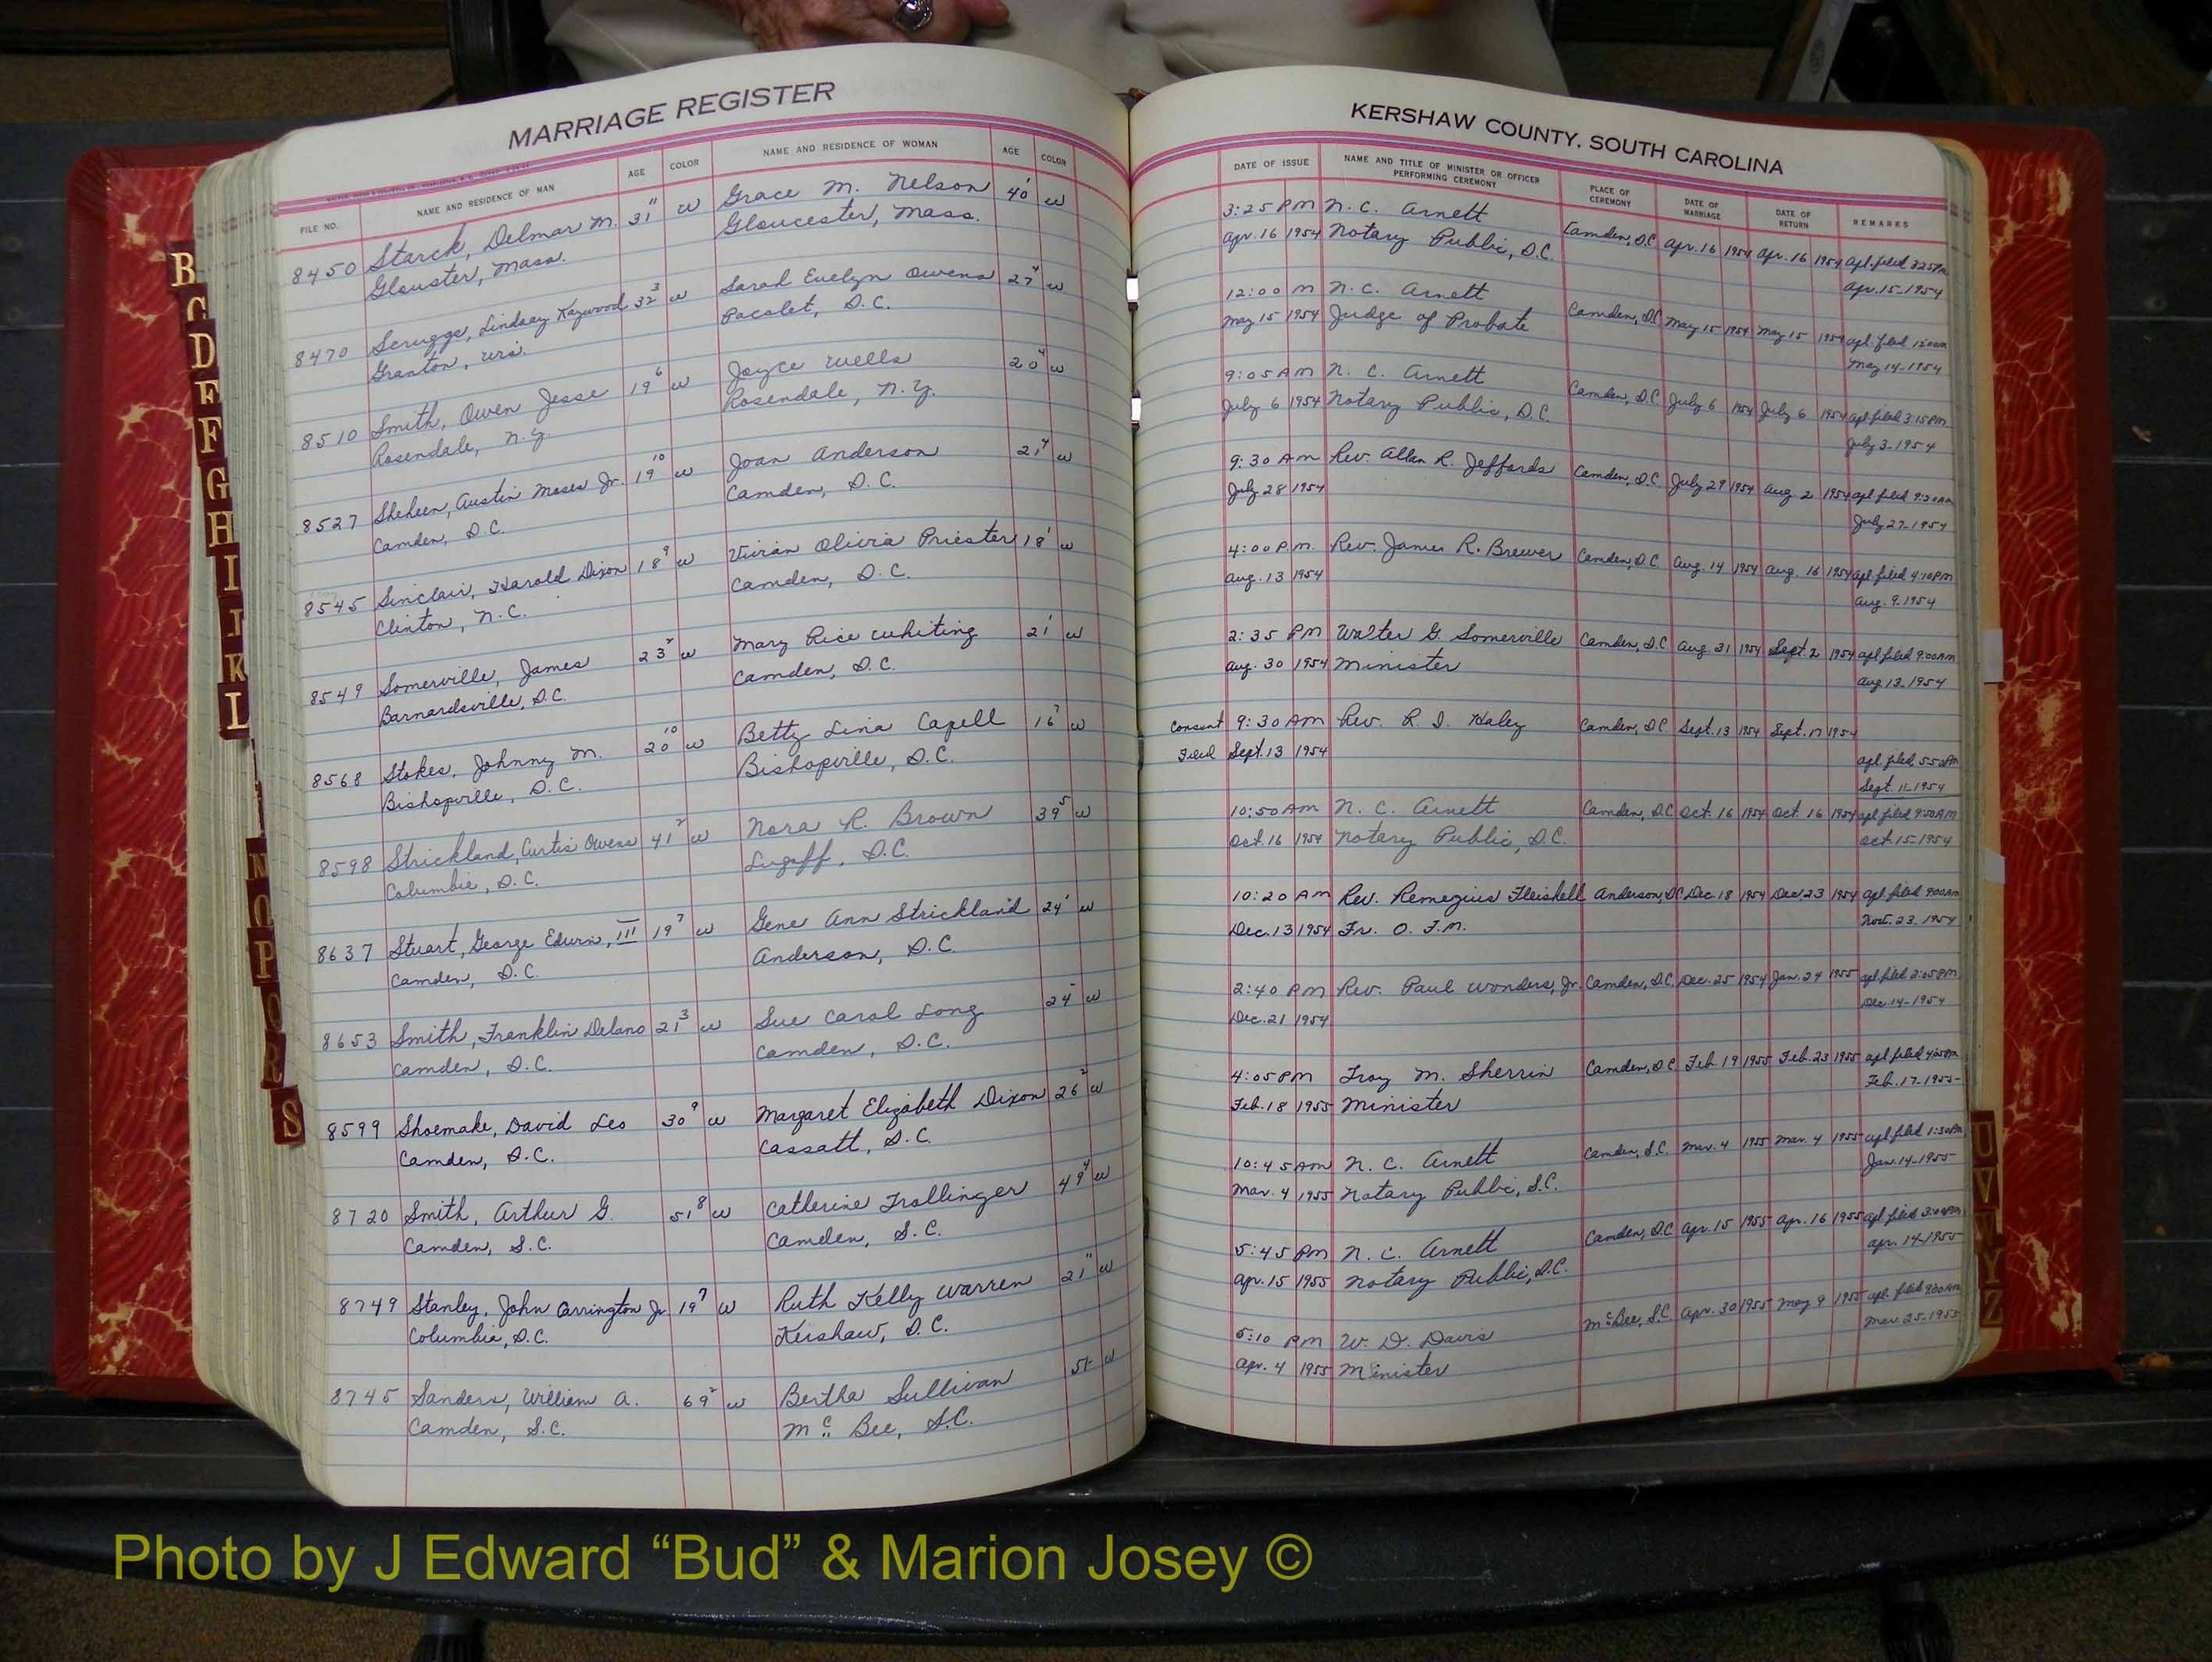 MARRIAGE REGISTER
FILE NO. NAME AND RESIDENCE OF MAN AGE COLOR NAME AND RESIDENCE OF WOMAN AGE COLOR
8450 Starck, Delmar M. 31 11 W Grace M. Nelson 40 1 W
Glouster, Mass. Gloucester, Mass.
8470 Scruggs, Lindsay Haywood 32 3 W Sarah Evelyn Owens 27 4 W
Granton, Wis. Pacolet, S.C.
8510 Smith, Owen Jesse 19 6 W Joyce Wells 20 4 W
Rosendale, N.Y. Rosendale, N.Y.
8527 Sheheen, Austin Moses Jr. 19 10 W Joan Anderson 21 4 W
Camden, S.C. Camden, S.C.
8545 Sinclair, Harold Dixon 18 9 W Vivian Olivia Priester 18 1 W
Clinton, N.C. Camden, S.C.
8549 Somerville, James 23 W Mary Rice Whiting 21 1 W
Barnardsville, S.C. Camden, S.C.
8568 Stokes, Johnny M. 20 10 W Betty Lina Capell 16 7 W
Bishopville, S.C. Bishopville, S.C.
8598 Strickland, Curtis Owens 41 2 W Nora R. Brown 39 5 W
Columbia, S.C. Lugoff, S.C.
8637 Stuart, George Edwin, III 19 7 W Gene Ann Strickland 24 1 W
Camden, S.C. Anderson, S.C.
8653 Smith, Franklin Delano 21 3 W Sue Carol Long 24 W
Camden, S.C. Camden, S.C.
8599 Shoemake, David Leo 30 9 W Margaret Elizabeth Dixon 26 2 W
Camden, S.C. Cassatt, S.C.
8720 Smith, Arthur G. 51 8 W Catherine Trollinger 49 4 W
Camden, S.C. Camden, S.C.
8749 Stanley, John Carrington Jr. 19 7 W Ruth Kelly Warren 21 11 W
Columbia, S.C. Kershaw, S.C.
8745 Sanders, William A. 69 2 W Bertha Sullivan W
Camden, S.C. Mc Bee, S.C.
KERSHAW COUNTY, SOUTH CAROLINA
DATE OF ISSUE NAME AND TITLE OF MINISTER OR OFFICER PERFORMING CEREMONY PLACE OF CEREMONY DATE OF MARRIAGE DATE OF RETURN REMARKS
3:25 PM N. C. Arnett Camden, S.C. Apr. 16 1954 Apr. 16 1954 apl. filed 3:25 PM
Apr. 16 1954 Notary Public, S.C. Apr. 15-1954
12:00 M N. C. Arnett Camden, S.C. May 15 1954 May 15 1954 apl. filed
May 15 1954 Judge of Probate May 14-1954
9:05 AM N. C. Arnett Camden, S.C. July 6 1954 July 6 1954 apl. filed 3:15 PM.
July 6 1954 Notary Public, S.C. July 3-1954
9:30 AM Rev. Allan R. Jeffords Camden, S.C. July 29 1954 Aug. 2 1954 apl. filed 9:20 AM
July 28 1954 July 27-1954
4:00 P.M. Rev. James R. Brewer Camden, S.C. Aug. 14 1954 Aug. 16 1954 apl. filed 4:10 PM
Aug. 13 1954 Aug. 9-1954
2:35 PM Walter G. Somerville Camden, S.C. Aug. 31 1954 Sept. 2 1954 apl. filed 9:00 AM
Aug. 30 1954 Minister Aug 13-1954
Consent 9:30 AM Rev. R. I. Haley Camden, S.C. Sept. 13 1954 Sept. 17 1954
Filed Sept. 13 1954 apl. filed
Sept. 11-1954
10:50 AM N. C. Arnett Camden, S.C. Oct. 16 1954 Oct. 16 1954 apl. filed 9:50 AM
Oct. 16 1954 Notary Public, S.C. Oct. 15-1954
10:20 AM Rev. Remegius Fleishell Anderson, S.C. Dec. 18 1954 Dec. 23 1954 apl. filed 9:00 AM
Dec. 13 1954 Fr. O. F.M. Nov. 23-1954
2:40 PM Rev. Paul Wonders, Jr. Camden, S.C. Dec. 25 1954 Jan. 24 1955 apl. filed 2:05 PM
Dec. 21 1954 Dec. 14-1954
4:05 PM Troy M. Sherrin Camden, S.C. Feb. 19 1955 Feb. 23 1955 apl. filed
Feb. 18 1955 Minister Feb. 17-1955
10:45 AM N. C. Arnett Camden, S.C. Mar. 4 1955 Mar. 4 1955 apl. filed 1:50 PM
Mar. 4 1955 Notary Public, S.C. Jan. 14-1955
5:45 PM N. C. Arnett Camden, S.C. Apr. 15 1955 Apr. 16 1955 apl. filed
Apr. 15 1955 Notary Public, S.C. Apr. 14-1955
5:10 PM W. D. Davis McBee, S.C. Apr. 30 1955 May 9 1955 apl. filed 9:00 AM
Apr. 4 1955 Minister Mar. 25-1955
B
C
D
E
F
G
H
I
J
K
L
N
O
P
Q
R
S
U
V
W
Y
Z
Photo by J Edward “Bud” & Marion Josey ©